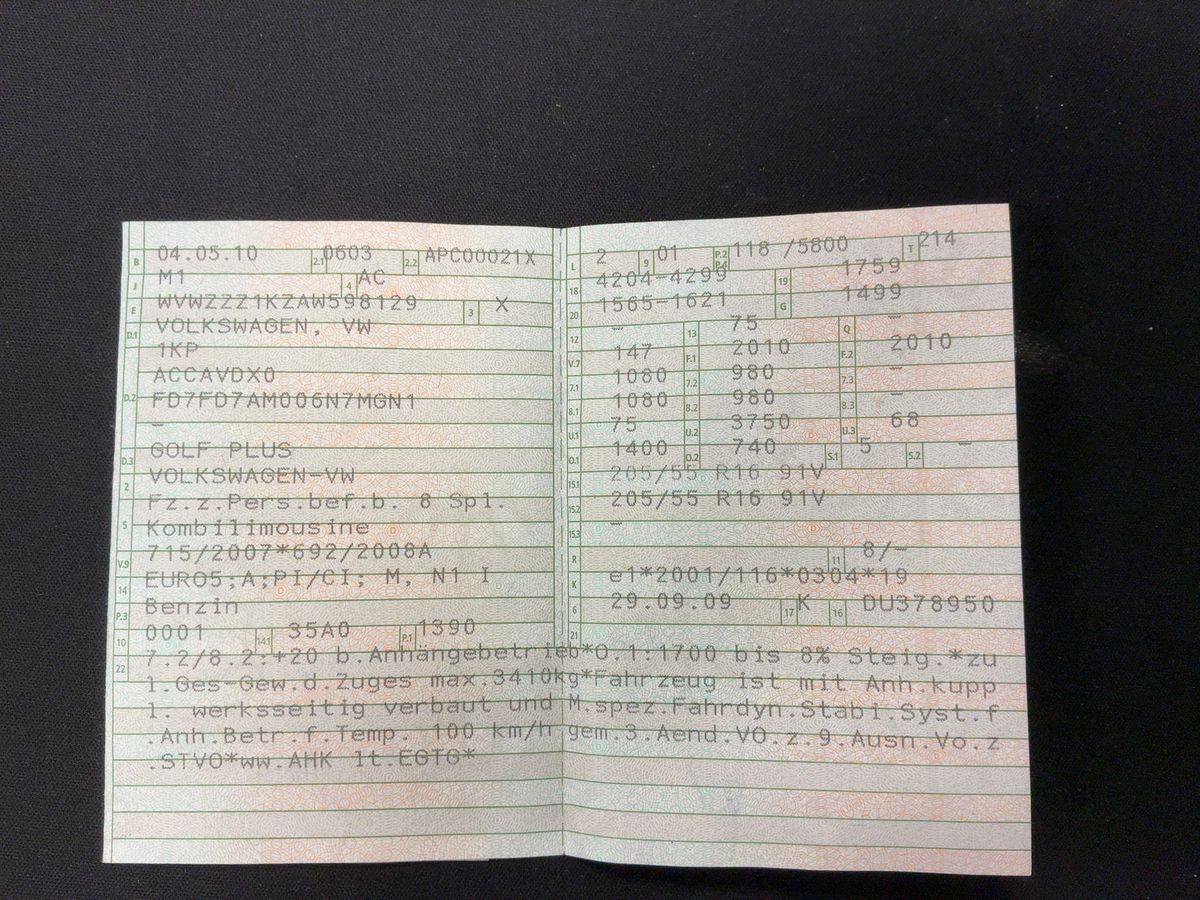 B 04.05.10 2.1 0603 2.2 APC00021X
J M1 4 AC
E WVWZZZ1KZAW598129 3 X
D.1 VOLKSWAGEN, VW
1KP
ACCAVDX0
D.2 FD7FD7AM006N7MGN1
–
D.3 GOLF PLUS
2 VOLKSWAGEN-VW
Fz.z.Pers.bef.b. 8 Spl.
5 Kombilimousine
V.9 715/2007*692/2008A
14 EURO5;A;PI/CI; M, N1 I
P.3 Benzin
10 0001 14.1 35A0 P.1 1390
L 2 9 01 P.2 P.4 118 /5800 T 214
18 4204-4299 19 1759
20 1565-1621 G 1499
12 – 13 75 Q –
V.7 147 F.1 2010 F.2 2010
7.1 1080 7.2 980 7.3 –
8.1 1080 8.2 980 8.3 –
U.1 75 U.2 3750 U.3 68
O.1 1400 O.2 740 S.1 5 S.2 –
15.1 205/55 R16 91V
15.2 205/55 R16 91V
15.3 –
R 11 8/–
K e1*2001/116*0304*19
6 29.09.09 17 K 16 DU378950
21
22 7.2/8.2:+20 b.Anhängebetrieb*O.1:1700 bis 8% Steig.*zu
l.Ges-Gew.d.Zuges max.3410kg*Fahrzeug ist mit Anh.kupp
l. werksseitig verbaut und M.spez.Fahrdyn.Stabi.Syst.f
.Anh.Betr.f.Temp. 100 km/h gem.3.Aend.VO.z.9.Ausn.Vo.z
.STVO*ww.AHK lt.EGTG*